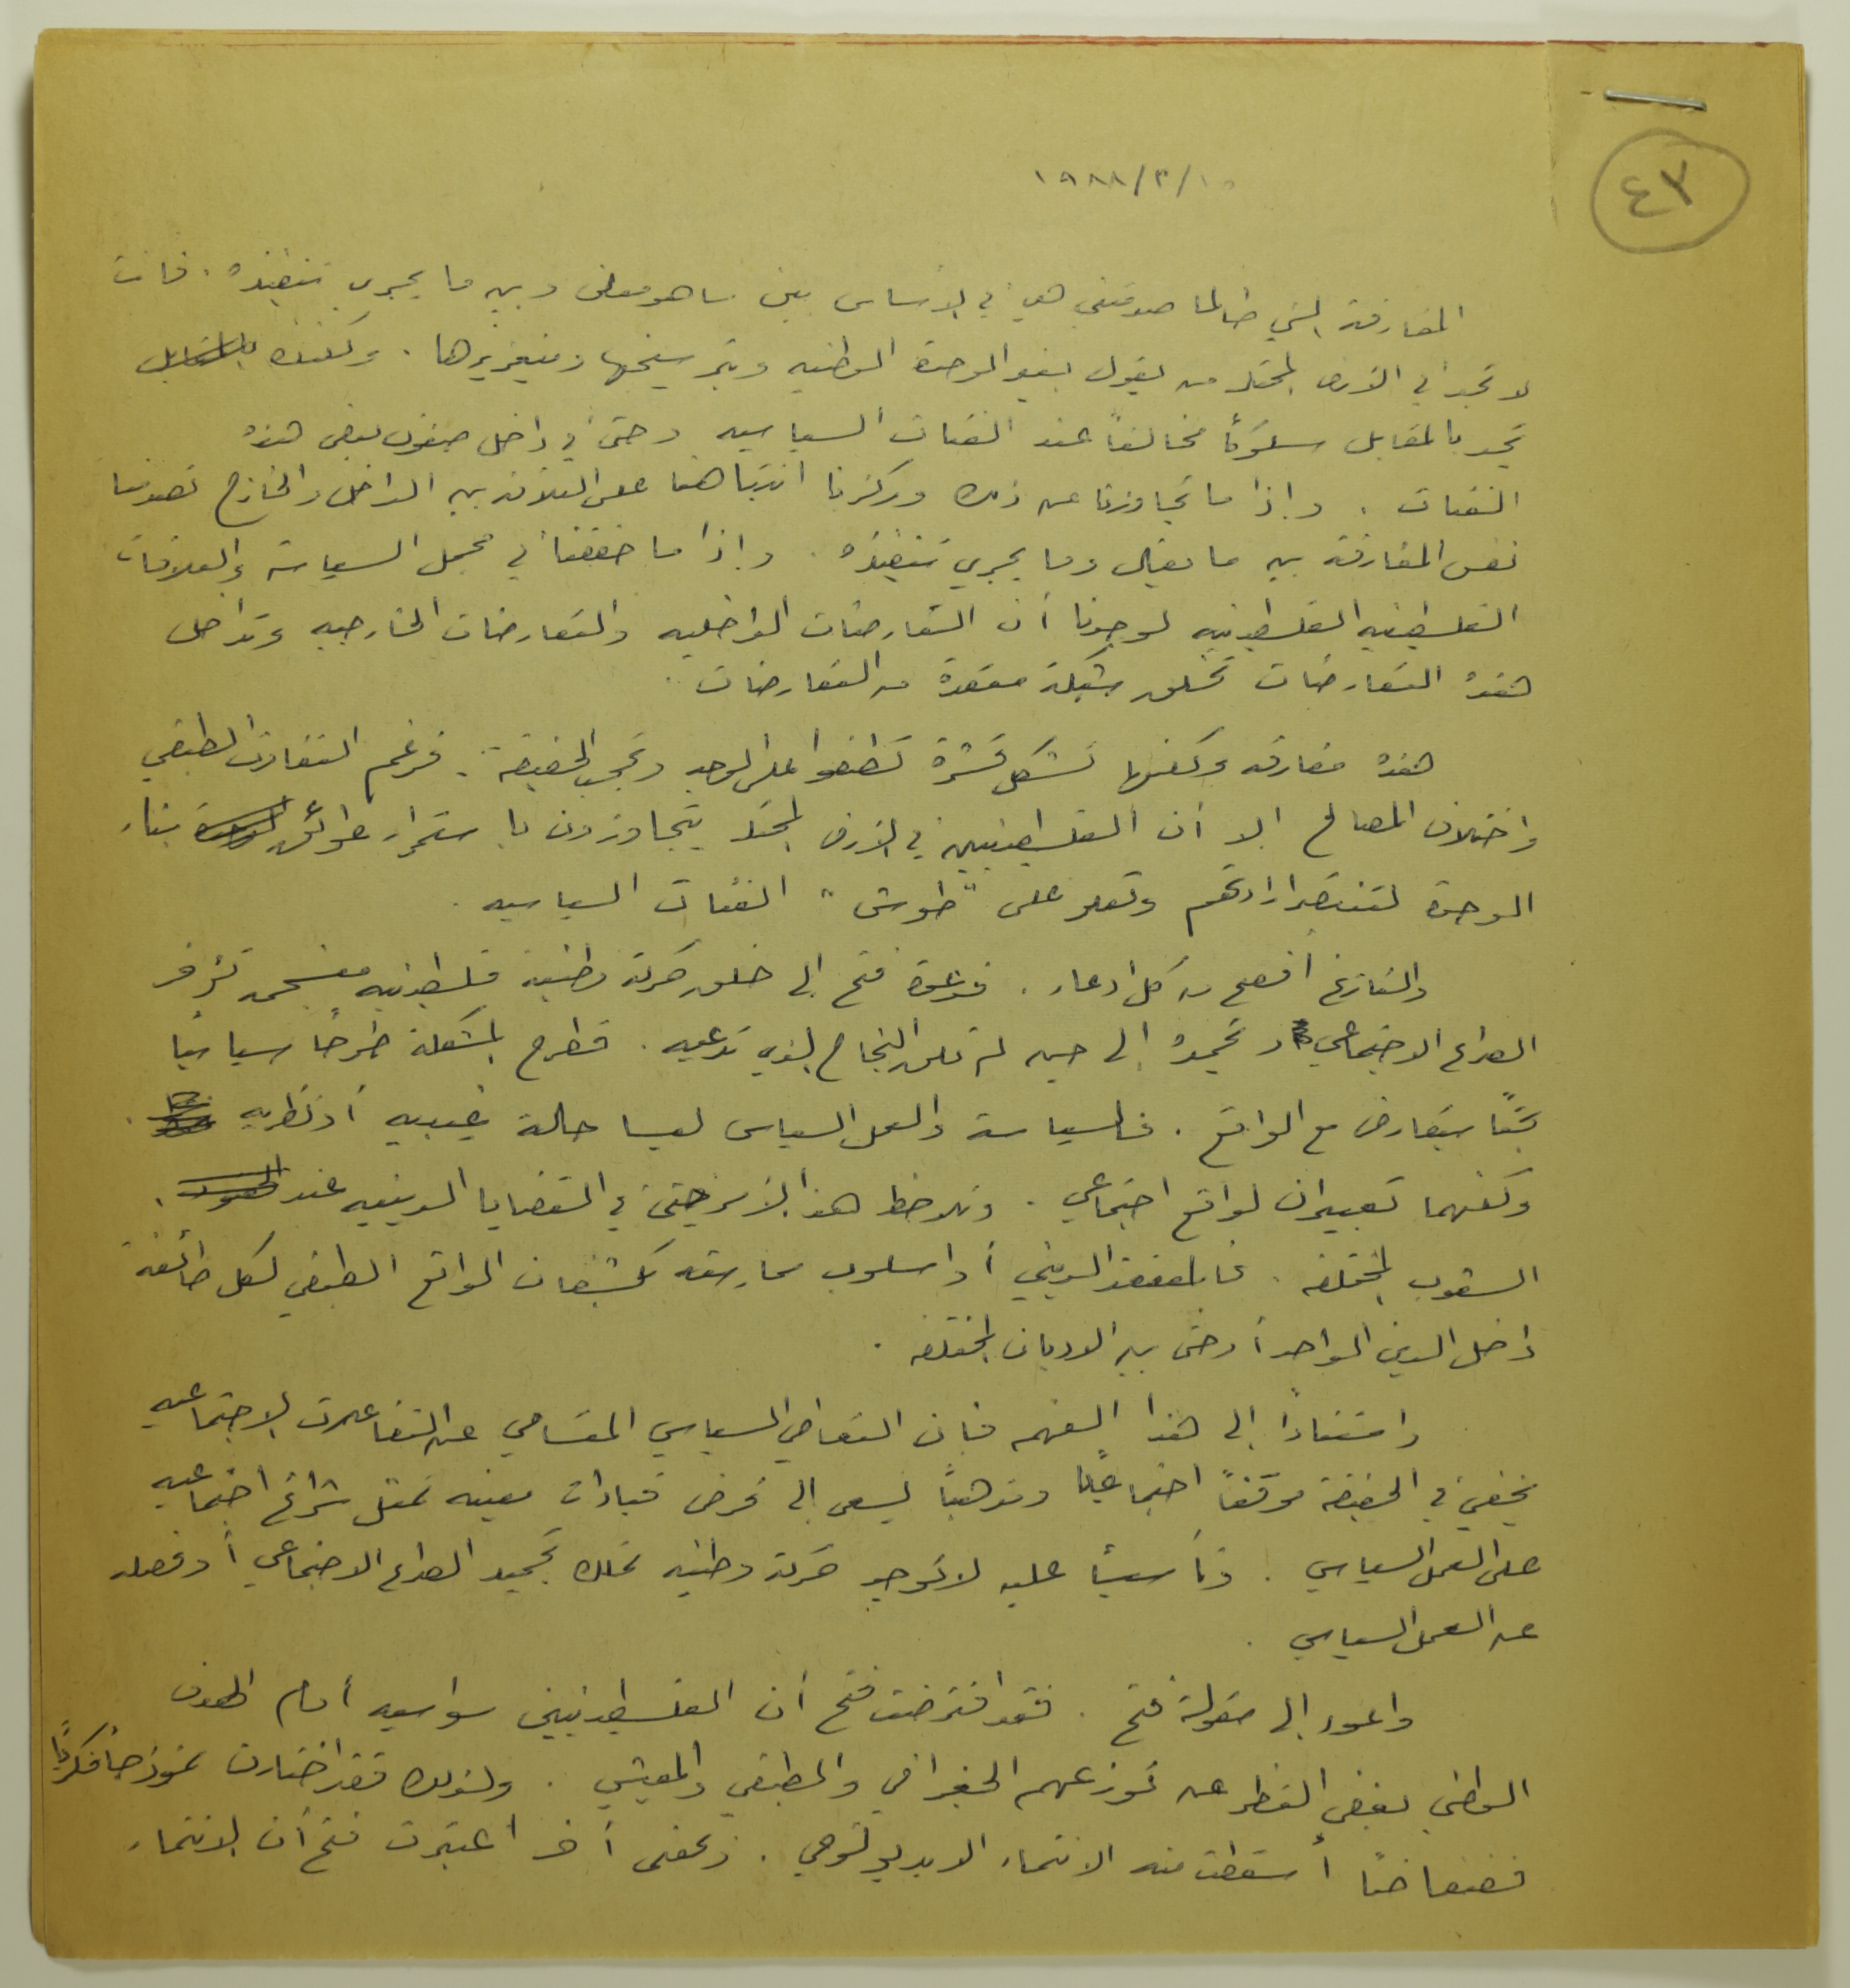 ٤٣
١٩٨٨/٣/١٥
المفارقة التي طالما صدمتني هي في الأساس بين ما هو معلن وبين ما يجري تنفيذه. فأنت
لا تجد في الأرض المحتلة من يقول بغير الوحدة الوطنيه وبترسيخها وبتعزيزها. ولكنك بالمقابل
تجد بالمقابل سلوكاً مخالفاً عند الفئات السياسيه وحتى في داخل صفوف بعض هذه
الفئات. واذا ما تجاوزنا عن ذلك وركزنا انتباهنا على العلاقة بين الداخل والخارج تصدمنا
نفس المفارقة بين ما يقال وما يجري تنفيذه. واذا ما حققنا في مجمل السياسة والعلاقات
الفلسطينيه الفلسطينيه لوجدنا أن التعارضات الداخليه والتعارضات الخارجيه وتداخل
هذه التعارضات تخلق شبكة معقدة من التعارضات.
هذه مفارقه ولكنها تشكل قشرة تطفوا على الوجه وتحجب الحقيقة. فرغم التفاوت الطبقي
واختلاف المصالح الا أن الفلسطينيين في الأرض المحتلة يتجاوزون باستمرار عوائق الوحدة بناء
الوحدة لتنتصر ارادتهم وتعلو على "طوش" الفئات السياسيه.
والتاريخ أفصح من كل ادعاء. فدعوة فتح إلى خلق حركة وطنية فلسطينيه منسجمة تؤخر
الصراع الاجتماعي وتجمده إلى حين لم تلق النجاح الذي تدعيه. فطرح المشكلة طرحاً سياسياً
بحتاً يتعارض مع الواقع. فالسياسة والعمل السياسي ليسا حالة غيبيه أو نظريه.
ولكنهما تعبيران لواقع اجتماعي. ونلاحظ هذا الأمر حتى في القضايا الدينيه عند
الشعوب المختلفه. فالمعتقد الديني أو اسلوب ممارسته يكشفان الواقع الطبقي لكل طائفة
داخل الدين الواحد أو حتى بين الاديان المختلفه.
واستناداً إلى هذا الفهم فان التعاطي السياسي المتسامي عن التفاعلات الاجتماعيه
يخفي في الحقيقة موقفاً اجتماعياً ومذهباً يسعى إلى فرض قيادات معينه تمثل شرائح اجتماعيه
على العمل السياسي. وتأسيساً عليه لا توجد حركة وطنيه تملك تجميد الصراع الاجتماعي أو فصله
عن العمل السياسي.
واعود إلى مقولة فتح. فقد افترضت فتح أن الفلسطينيين سواسيه أمام الهدف
الوطني بغض النظر عن توزعهم الجغرافي والطبقي والمعيشي. ولذلك فقد اختارت نموذجاً فكرياً
فضفاضاً أسقطت منه الانتماء الايديولوجي. وبمعنى آخر اعتبرت فتح أن الانتماء